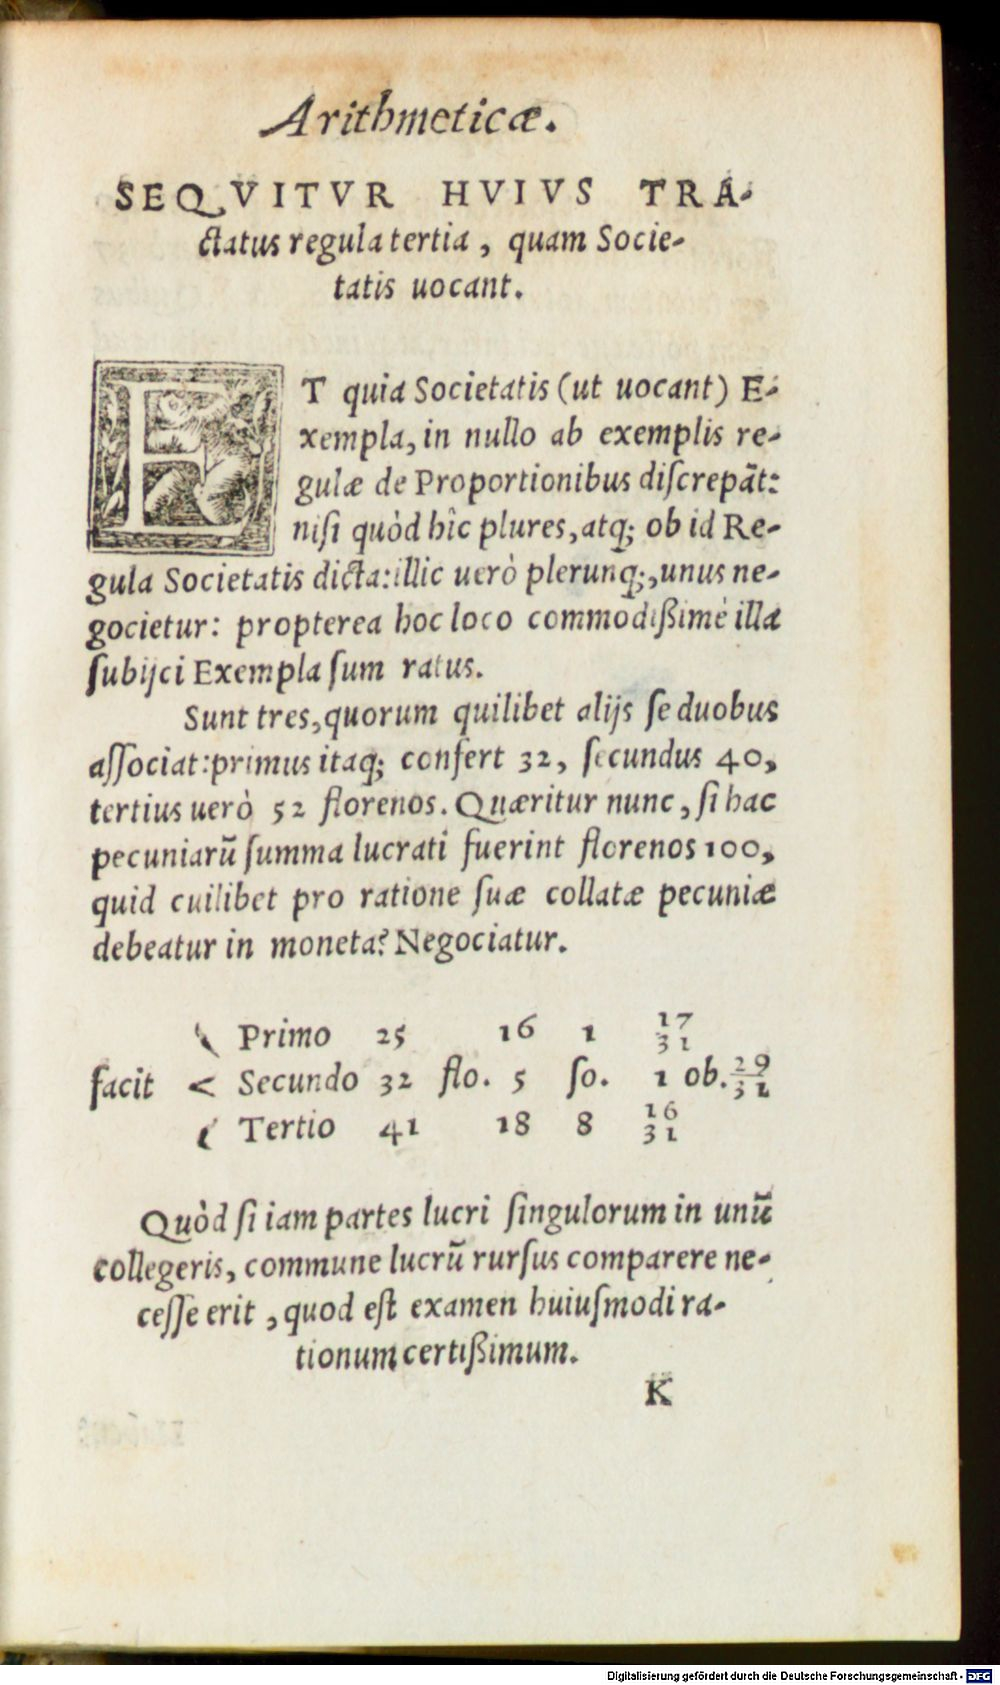 Arithmeticæ.
SEQVITVR HVIVS TRA-
ctatus regula tertia, quam Socie-
tatis uocant.
ET quia Societatis (ut uocant) E-
xempla, in nullo ab exemplis re-
gulæ de Proportionibus diſcrepāt:
niſi quòd hîc plures, atq; ob id Re-
gula Societatis dicta: illic uerò plerunq;, unus ne-
gocietur: propterea hoc loco commodißimè illa
ſubijci Exempla ſum ratus.
Sunt tres, quorum quilibet alijs ſe duobus
aſſociat: primus itaq; confert 32, ſecundus 40,
tertius uerò 52 florenos. Quæritur nunc, ſi hac
pecuniarū ſumma lucrati fuerint florenos 100,
quid cuilibet pro ratione ſuæ collatæ pecuniæ
debeatur in moneta? Negociatur.
Primo 25 16 1 17/31
facit < Secundo 32 flo. 5 ſo. 1 ob. 29/31
Tertio 41 18 8 16/31
Quòd ſi iam partes lucri ſingulorum in unū
collegeris, commune lucrū rurſus comparere ne-
ceſſe erit, quod eſt examen huiuſmodi ra-
tionum certißimum.
K
Digitalisierung gefördert durch die Deutsche Forschungsgemeinschaft - DFG